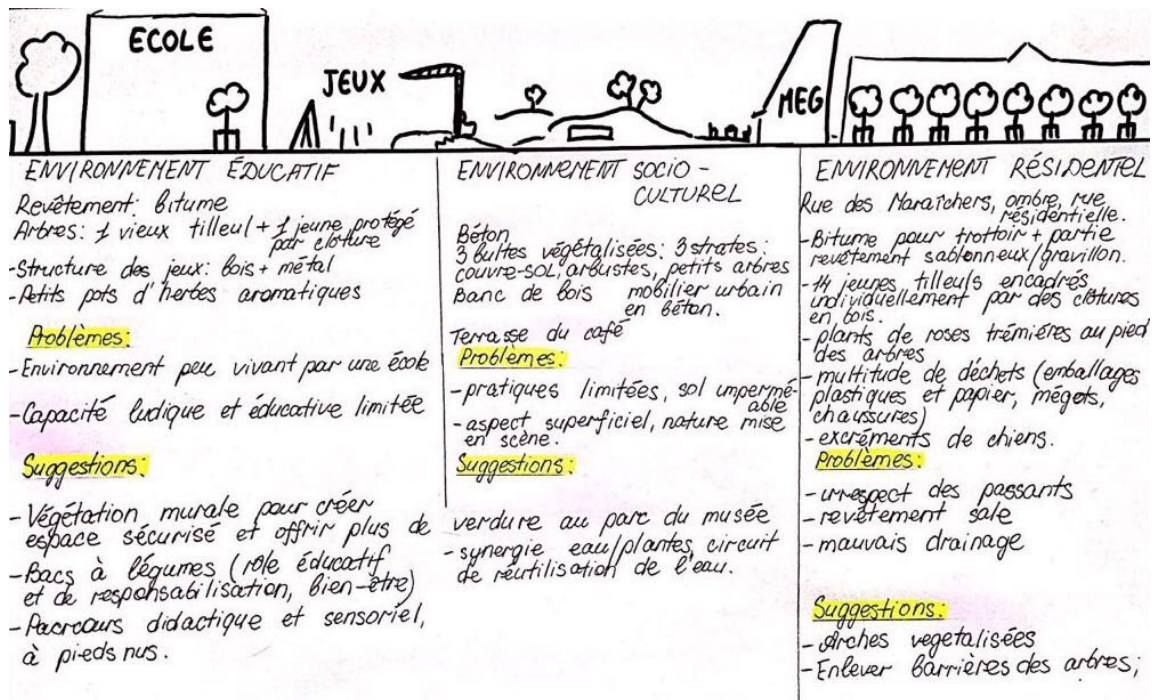 ECOLE
JEUX
MEG
ENVIRONNEMENT ÉDUCATIF
Revêtement: bitume
Arbres: 1 vieux tilleul + 1 jeune protégé
par cloture
-Structure des jeux: bois + métal
-Petits pots d'herbes aromatiques
Problèmes:
-Environnement peu vivant par une école
-Capacité ludique et éducative limitée
Suggestions:
-Végétation murale pour créer
espace sécurisé et offrir plus de
-Bacs à légumes (rôle éducatif
et de responsabilisation, bien-être)
-Parcours didactique et sensoriel,
à pieds nus.
ENVIRONNEMENT SOCIO-
CULTUREL
Béton
3 buttes végétalisées: 3 strates:
couvre-sol, arbustes, petits arbres
Banc de bois mobilier urbain
en béton.
Terrasse du café
Problèmes:
-pratiques limitées, sol imperméable
-aspect superficiel, nature mise
en scène.
Suggestions:
verdure au parc du musée
-synergie eau/plantes, circuit
de réutilisation de l'eau.
ENVIRONNEMENT RÉSIDENTEL
Rue des Maraîchers, ombre, rue
résidentielle.
-Bitume pour trottoir + partie
revêtement sablonneux/gravillon.
-14 jeunes tilleuls encadrés
individuellement par des clôtures
en bois.
-plants de roses trémières au pied
des arbres
-multitude de déchets (emballages
plastiques et papier, mégots,
chaussures)
-excréments de chiens.
Problèmes:
-irrespect des passants
-revêtement sale
-mauvais drainage
Suggestions:
-Arches vegetalisées
-Enlever barrières des arbres;